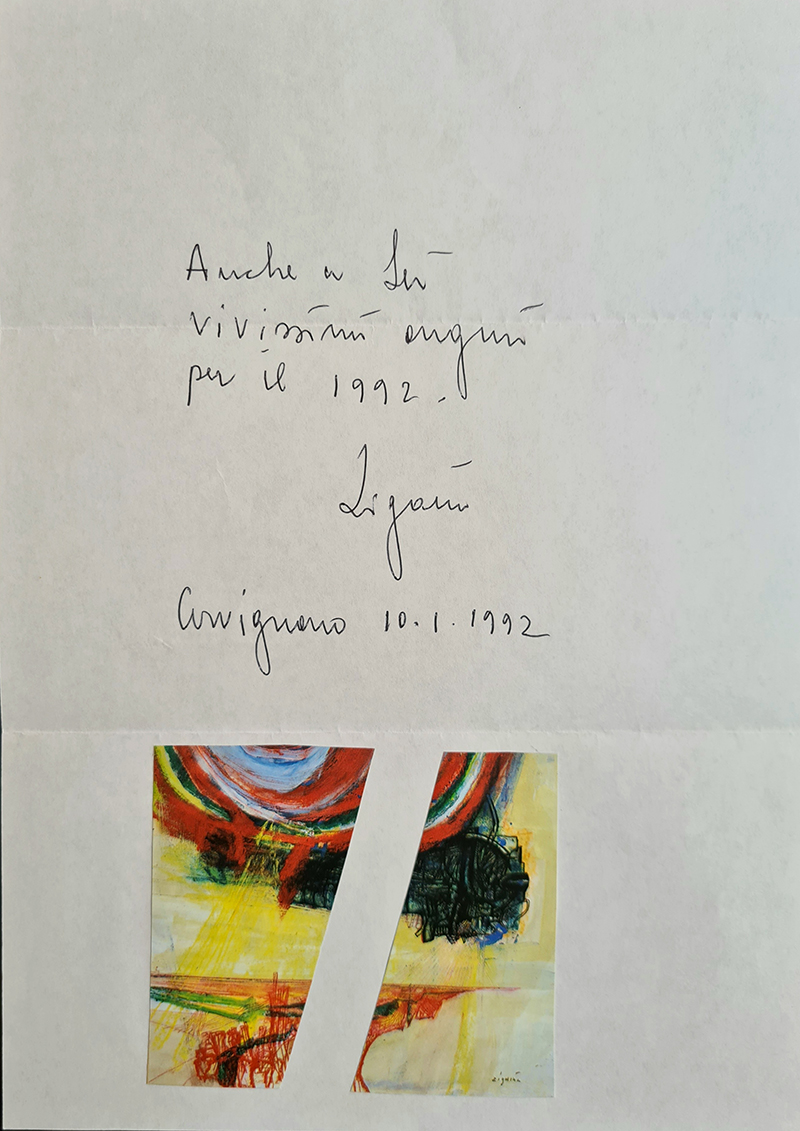 Anche a Lei
vivissimi auguri
per il 1992.
Zigaina
Cervignano 10.1.1992
zigaina